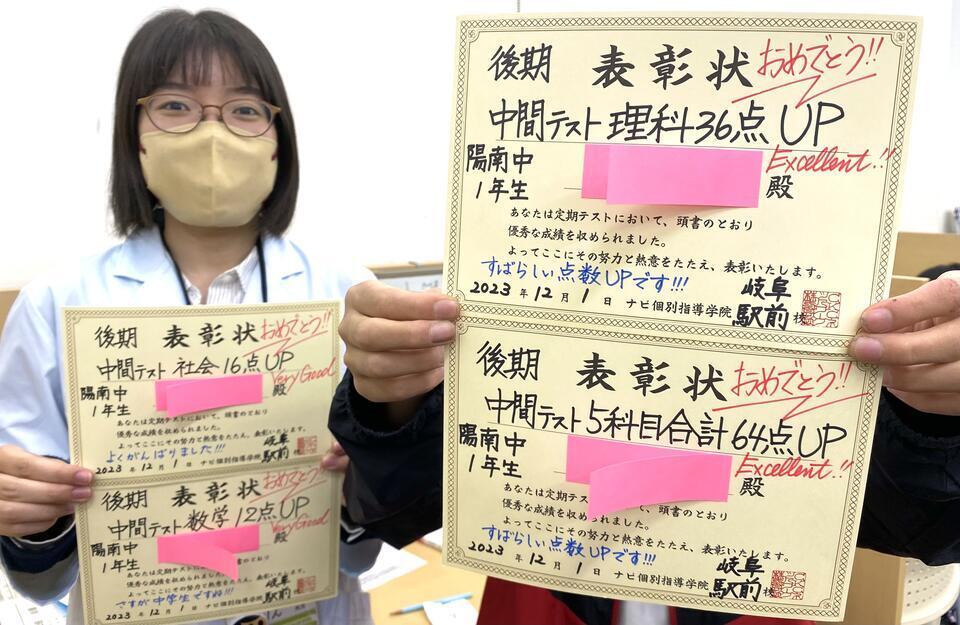 後期 表彰状 おめでとう!!
中間テスト 理科+36点UP
Excellent!!
陽南中
1年生
殿
あなたは定期テストにおいて、頭書のとおり
優秀な成績を収められました。
よってここにその努力と熱意をたたえ、表彰いたします。
すばらしい点数UPです!!!
2023年12月1日 ナビ個別指導学院 岐阜駅前校
後期 表彰状 おめでとう!!
中間テスト 5科目合計 64点UP
Excellent!!
陽南中
1年生
殿
あなたは定期テス 頭書のとおり
優秀な成績を収められました。
よってここにその努力と熱意をたたえ、表彰いたします。
すばらしい点数UPです!!!
2023年12月1日 ナビ個別指導学院 岐阜駅前校
後期 表彰状 おめでとう!!
中間テスト 社会 16点UP
Very Good
陽南中
1年生
殿
あなたは定期テストにおいて、頭書のとおり
優秀な成績を収められました。
よってここにその努力と熱意をたたえ、表彰いたします。
よくがんばりました!!!
2023年12月1日 ナビ個別指導学院 岐阜駅前校
後期 表彰状 おめでとう!!
中間テスト 数学 12点UP
Very Good
陽南中
1年生
殿
あなたは定期テスト おいて、頭書のとおり
優秀な成績を収められ
よってここにその努力と熱意をたたえ、表彰いたします。
さすが中学生ですね!!!
2023年12月1日 ナビ個別指導学院 岐阜駅前校